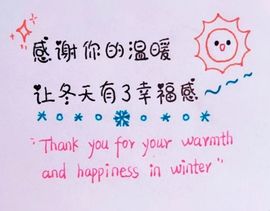 感谢你的温暖
让冬天有了幸福感
"Thank you for your warmth
and happiness in winter"